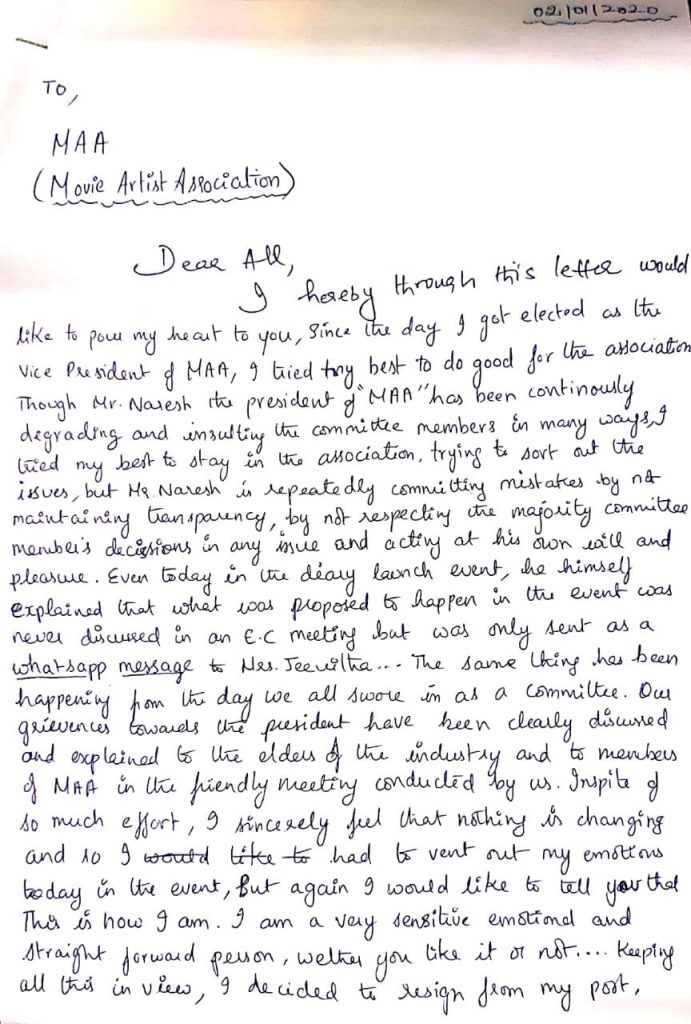 02/01/2020
To,
MAA
(Movie Artist Association)
Dear All,
I hereby through this letter would
like to pour my heart to you, Since the day I got elected as the
Vice President of MAA, I tried my best to do good for the association
Though Mr. Naresh the president of "MAA" has been continously
degrading and insulting the committee members in many ways, I
tried my best to stay in the association, trying to sort out the
issues, but Mr. Naresh is repeatedly committing mistakes by not
maintaining transparency, by not respecting the majority committee
member's decissions in any issue and acting at his own will and
pleasure. Even today in the deary launch event, he himself
explained that what was proposed to happen in the event was
never discussed in an E.C meeting but was only sent as a
whatsapp message to Mrs. Jeevitha... The same thing has been
happening from the day we all swore in as a committee. Our
grievences towards the president have been clearly discussed
and explained to the elders of the industry and to members
of MAA in the friendly meeting conducted by us. Inspite of
so much effort, I sincerely feel that nothing is changing
and so I would like to had to vent out my emotions
today in the event, But again I would like to tell you that
This is how I am. I am a very sensitive emotional and
straight forward person, wether you like it or not.... Keeping
all this in view, I decided to resign from my post.